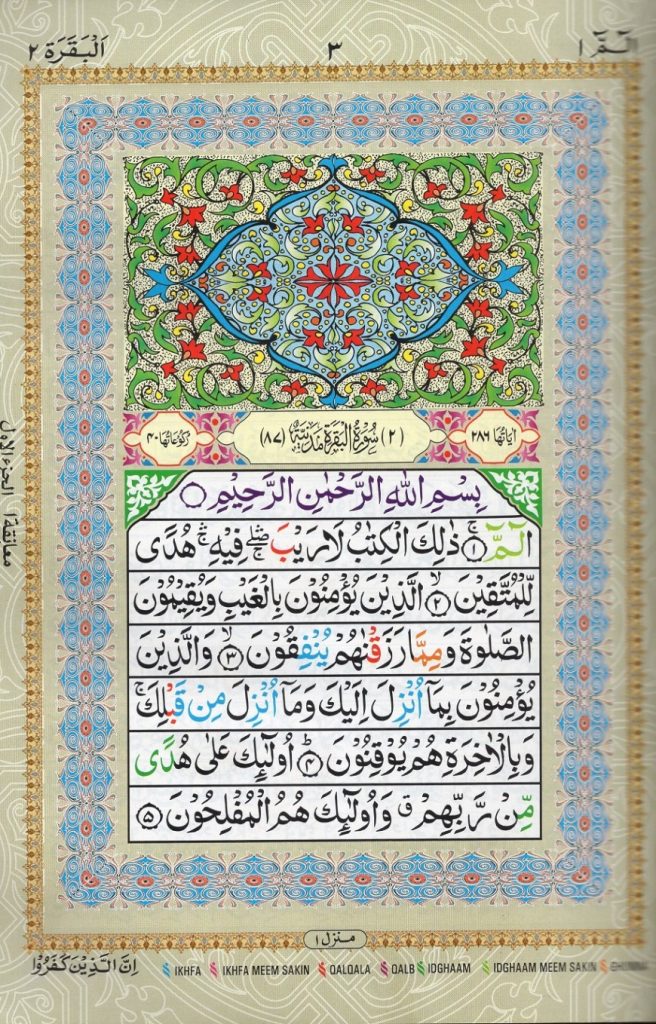 الٓمّٓ ١
٣
اَلْبَقَرَة ٢
اٰيَاتُهَا ٢٨٦
(٢) سُوْرَةُ الْبَقَرَةِ مَدَنِيَّةٌ (٨٧)
رُكُوْعَاتُهَا ٤٠
بِسْمِ اللّٰهِ الرَّحْمٰنِ الرَّحِيْمِ ۝
الٓمّٓ ۚ۝١ ذٰلِكَ الْكِتٰبُ لَا رَيْبَ ۛۖۚ فِيْهِ ۛۚ هُدًى
لِّلْمُتَّقِيْنَ ۙ۝٢ الَّذِيْنَ يُؤْمِنُوْنَ بِالْغَيْبِ وَيُقِيْمُوْنَ
الصَّلٰوةَ وَمِمَّا رَزَقْنٰهُمْ يُنْفِقُوْنَ ۙ۝٣ وَالَّذِيْنَ
يُؤْمِنُوْنَ بِمَآ اُنْزِلَ اِلَيْكَ وَمَآ اُنْزِلَ مِنْ قَبْلِكَ ۚ
وَبِالْاٰخِرَةِ هُمْ يُوْقِنُوْنَ ۭ۝٤ اُولٰٓئِكَ عَلٰى هُدًى
مِّنْ رَّبِّهِمْ ۤ وَاُولٰٓئِكَ هُمُ الْمُفْلِحُوْنَ ۝٥
معانقة ١ الجزء الاول
منزل ١
اِنَّ الَّذِيْنَ كَفَرُوْا
IKHFA IKHFA MEEM SAKIN QALQALA QALB IDGHAAM IDGHAAM MEEM SAKIN GHUNNA